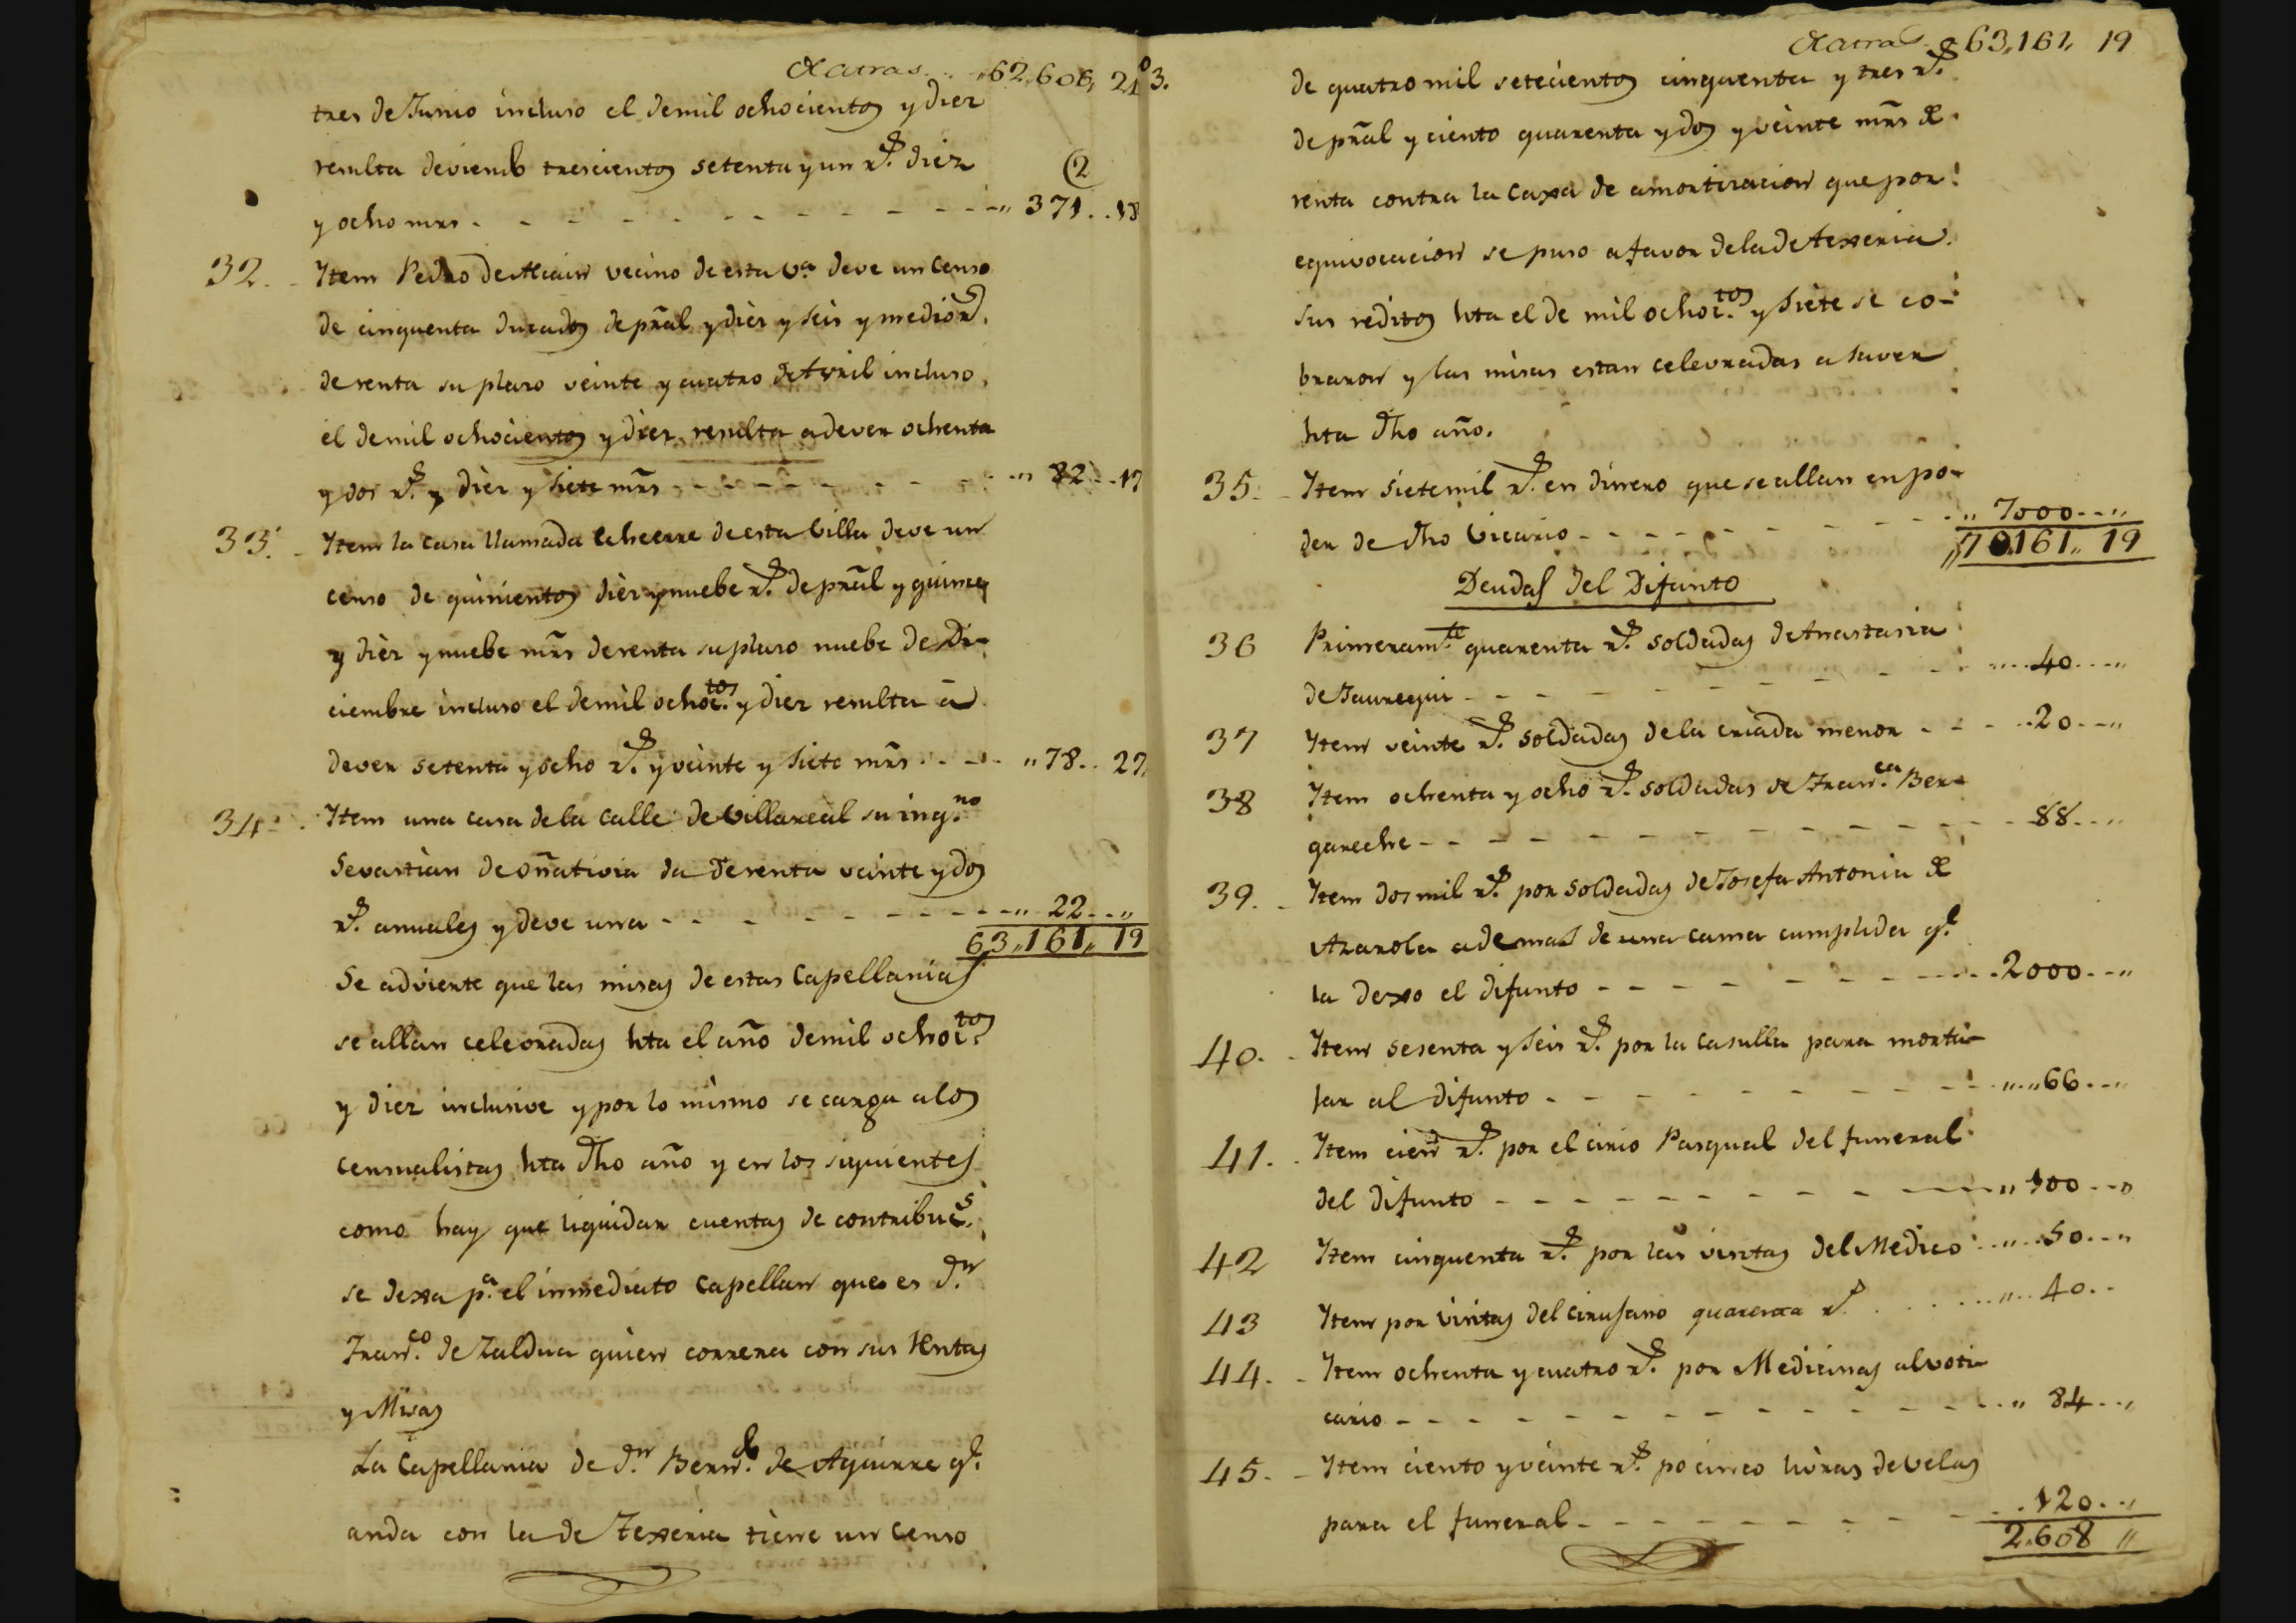 De atras... 62,,606,, 21 3.
tres de Junio incluso el de mil ochocientos y diez
resulta deviendo trescientos setenta y un r.s diez
y ocho mrs - - - - - - - - " 371.. 18
32. Item Pedro de Alcain vecino de esta V.a deve un censo
de cinquenta ducados de pral y diez y seis y medio r.s
de renta su plazo veinte y cuatro de Avril incluso
el de mil ochocientos y diez resulta a dever ochenta
y dos r.s y diez y siete mrs - - - - - - " 82.. 17
33. Item la casa llamada Echeerre de esta Villa deve un
censo de quinientos diez y nuebe r.s de pral y quince
y diez y nuebe mrs de renta su plazo nuebe de Di-
ciembre incluso el de mil ochoc.tos y diez resulta a
dever setenta y ocho r.s y veinte y siete mrs - - " 78.. 27
34. Item una casa de la calle de Villareal su inq.no
Sevastian de Oñativia da de renta veinte y dos
r.s anuales y deve una - - - - - - " 22.. "
63,,161,, 19
Se advierte que las misas de estas Capellanias
se allan celevradas hta el año de mil ochoc.tos
y diez inclusive y por lo mismo se carga a los
censualistas hta dho año y en los siguientes
como hay que liquidar cuentas de contribuc.s
se dexa p.a el inmediato Capellan que es d.n
Fran.co de Zaldua quien correra con sus Rentas
y Misas
La Capellania de d.n Bern.do de Aguirre q.e
anda con la de Texeria tiene un censo
De atras 63,,161,, 19
de quatro mil setecientos cinquenta y tres r.s
de pral y ciento quarenta y dos y veinte mrs de
renta contra la Caxa de amortizacion que por
equivocacion se puso a favor de la de Texeria.
sus reditos hta el de mil ochoc.tos y siete se co-
braron y las misas estan celevradas a saver
hta dho año.
35. Item siete mil r.s en dinero que se allan en po-
der de dho Vicario - - - - - - " 7000.. "
70,161,, 19
Deudas del Difunto
36 Primeram.te quarenta r.s soldadas de Anastasia
de Jauregui - - - - - - - - " 40.. "
37 Item veinte r.s soldadas de la criada menor - - 20.. "
38 Item ochenta y ocho r.s soldadas de Fran.ca Ber-
gareche - - - - - - - - 88.. "
39. Item dos mil r.s por soldadas de Josefa Antonia de
Azarola ademas de una cama cumplida q.e
la dexo el difunto - - - - - - 2000.. "
40. Item sesenta y seis r.s por la casulla para morta-
jar al difunto - - - - - - " 66.. "
41. Item cien r.s por el cirio Pasqual del funeral
del difunto - - - - - - " 100.. "
42 Item cinquenta r.s por las visitas del Medico .. " 50.. "
43 Item por visitas del cirujano quarenta r.s . . . " 40..
44. Item ochenta y cuatro r.s por Medicinas al voti-
cario - - - - - - - - " 84.. "
45. Item ciento y veinte r.s po cinco livras de velas
para el funeral - - - - - - . 120.. "
2,608 "